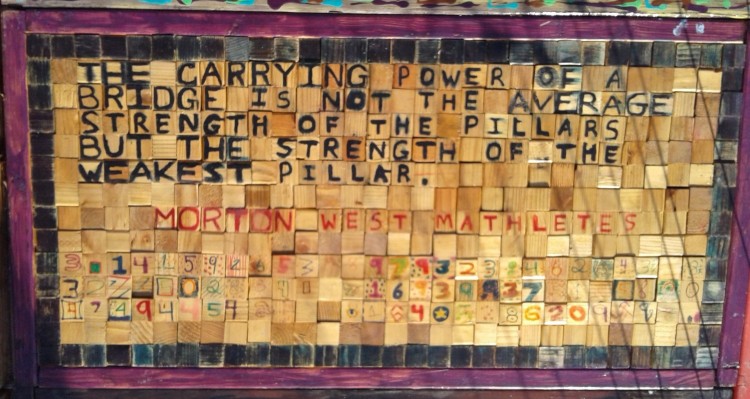 THE CARRYING POWER OF A
BRIDGE IS NOT THE AVERAGE
STRENGTH OF THE PILLARS
BUT THE STRENGTH OF THE
WEAKEST PILLAR.
MORTON WEST MATHLETES
3 . 1 4 1 5 9 2 6 5 3 9 7 9 3 2 3 8 4 6 2
1 6 9 3 9 9 3 7
9 4 4 5 6 4 8 6 2 0 9